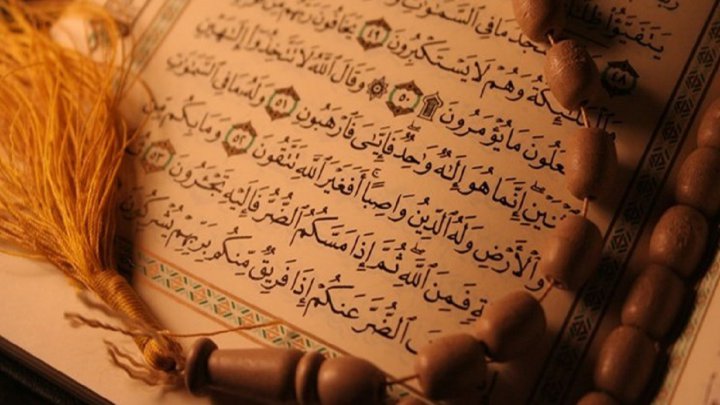 يَتَفَيَّؤُا۟ ظِلَـٰلُهُۥ
٤٨ سْجُدُ مَا فِى ٱلسَّمَـٰوَٰتِ
وَٱلْمَلَـٰٓئِكَةُ وَهُمْ لَا يَسْتَكْبِرُونَ ٤٩ يَخَافُونَ رَبَّهُم مِّن
عَلُونَ مَا يُؤْمَرُونَ ۩ ٥٠ ۞ وَقَالَ ٱللَّهُ لَا تَتَّخِذُوٓا۟ إِلَـٰهَيْنِ
ٱثْنَيْنِ ۖ إِنَّمَا هُوَ إِلَـٰهٌ وَٰحِدٌ ۖ فَإِيَّـٰىَ فَٱرْهَبُونِ ٥١ وَلَهُۥ مَا فِى ٱلسَّمَـٰوَٰتِ
وَٱلْأَرْضِ وَلَهُ ٱلدِّينُ وَاصِبًا ۚ أَفَغَيْرَ ٱللَّهِ تَتَّقُونَ ٥٢ وَمَا بِكُم مِّن
ةٍ فَمِنَ ٱللَّهِ ۖ ثُمَّ إِذَا مَسَّكُمُ ٱلضُّرُّ فَإِلَيْهِ تَجْـَٔرُونَ ٥٣
فَ ٱلضُّرَّ عَنكُمْ إِذَا فَرِيقٌ مِّنكُم بِرَبِّهِمْ يُشْرِكُونَ